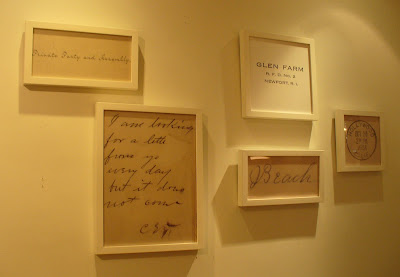 Private Party and Assembly
GLEN FARM
R. F. D., No. 2
NEWPORT, R. I.
I am looking
for a lette
from yo
every day
but it does
not come
Beach